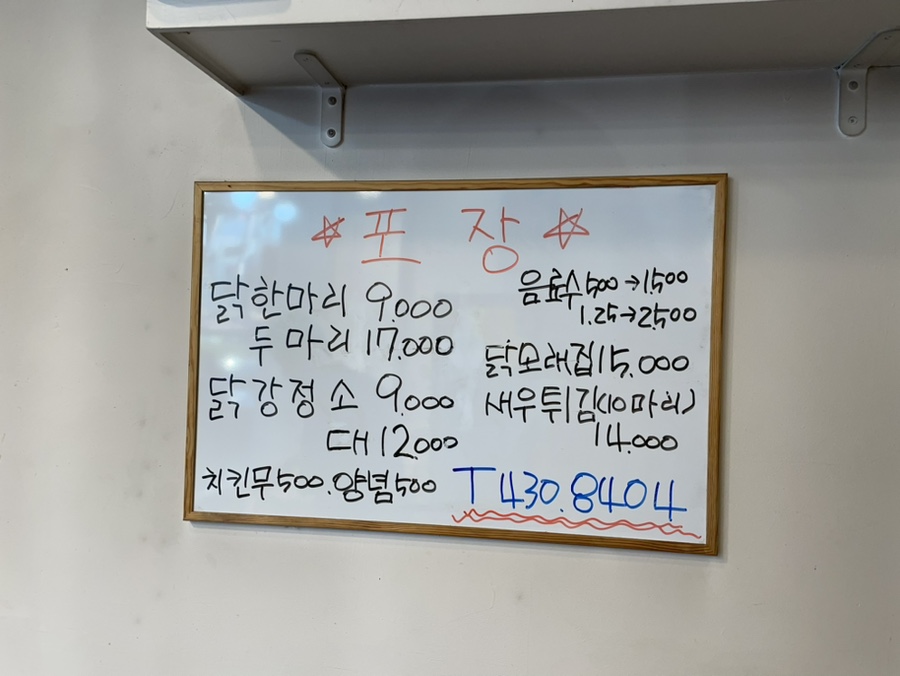 ☆포 장☆
닭한마리 9.000
두마리 17.000
닭강정 소 9.000
대 12.000
치킨무500.양념500
음료수500→1500
1.25→2500
닭모래집15.000
새우튀김(10마리)
14.000
T 430.8404